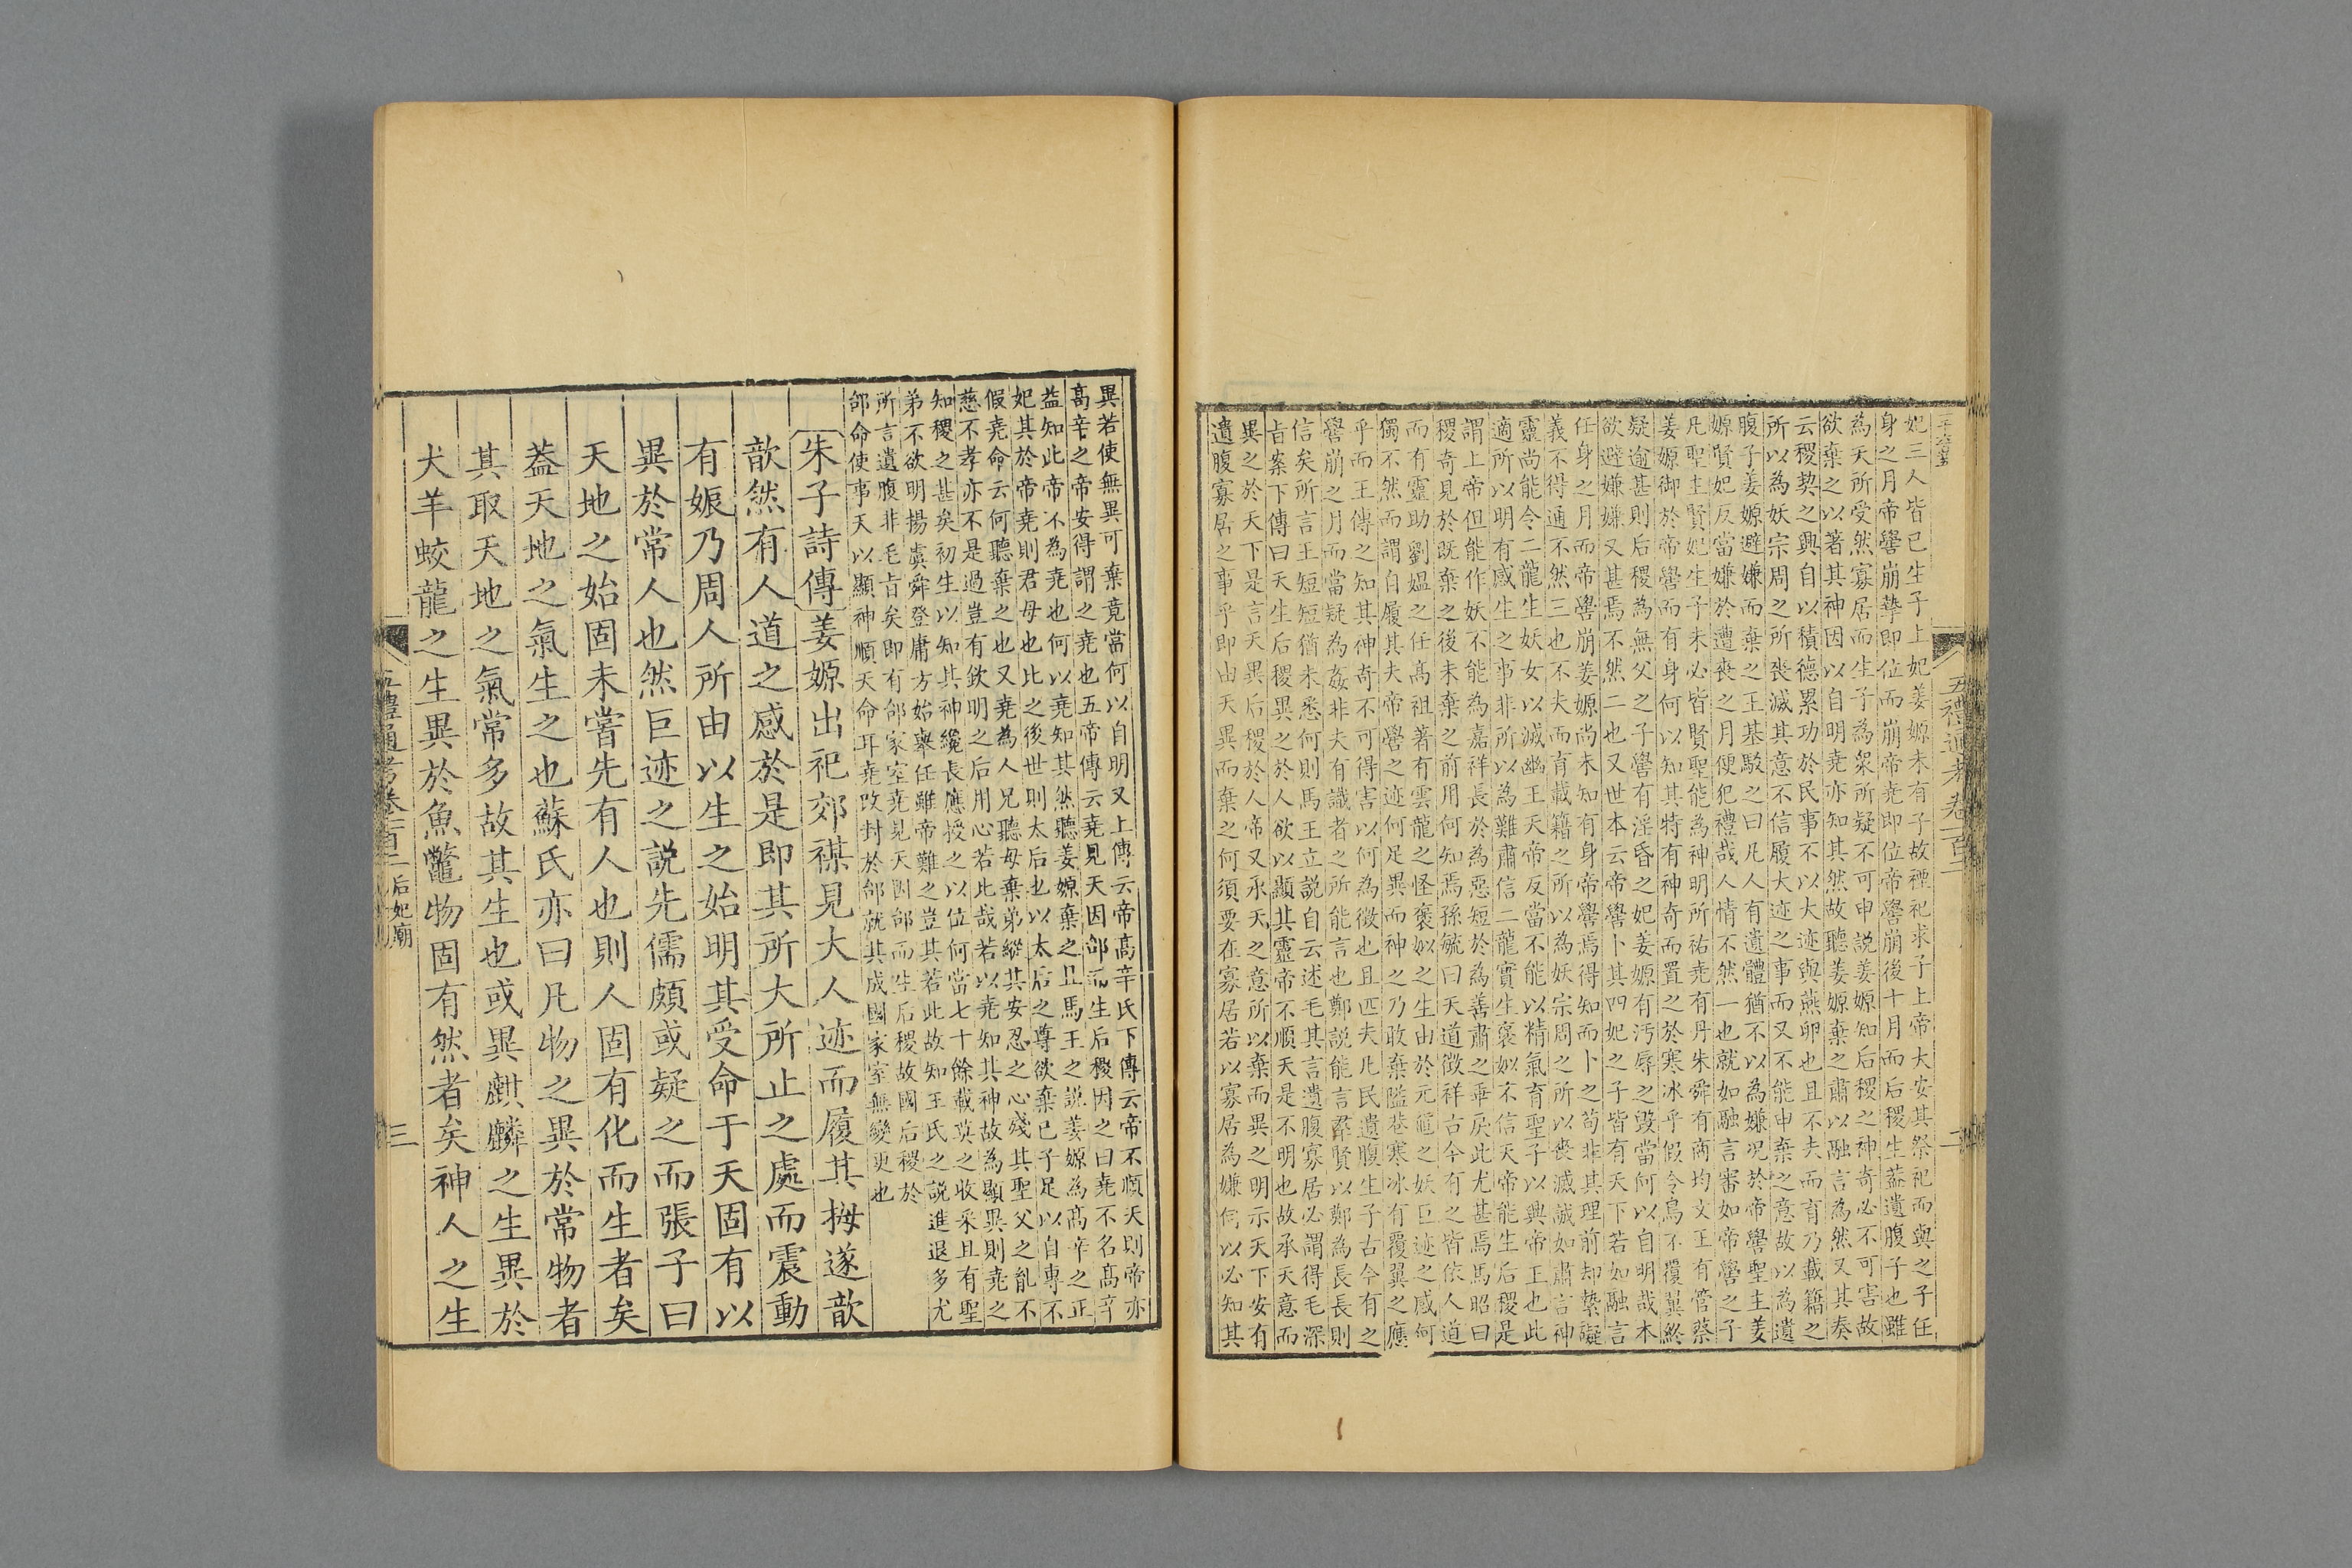 五禮通考卷一百二
二
妃三人皆已生子上妃姜嫄未有子故禋祀求子上帝大安其祭祀而與之子任
身之月帝嚳崩摯即位而崩帝堯即位帝嚳崩後十月而后稷生蓋遺腹子也雖
為天所受然寡居而生子為衆所疑不可申說姜嫄知后稷之神奇必不可害故
欲棄之以著其神因以自明堯亦知其然故聽姜嫄棄之肅以融言為然又其奏
云稷契之興自以積德累功於民事不以大迹與燕卵也且不夫而育乃載籍之
所以為妖宗周之所喪滅其意不信履大迹之事而又不能申棄之意故以為遺
腹子姜嫄避嫌而棄之王基駁之曰凡人有遺體猶不以為嫌况於帝嚳聖主姜
嫄賢妃反當嫌於遭喪之月便犯禮哉人情不然一也就如融言審如帝嚳之子
凡聖主賢妃生子未必皆賢聖能為神明所祐堯有丹朱舜有商均文王有管蔡
姜嫄御於帝嚳而有身何以知其特有神奇而置之於寒冰乎假令鳥不覆翼終
疑逾甚則后稷為無父之子嚳有淫昏之妃姜嫄有污辱之毀當何以自明哉本
欲避嫌嫌又甚焉不然二也又世本云帝嚳卜其四妃之子皆有天下若如融言
任身之月而帝嚳崩姜嫄尚未知有身帝嚳焉得知而卜之苟非其理前却縶礙
義不得通不然三也不夫而育載籍之所以為妖宗周之所以喪滅誠如肅言神
靈尚能令二龍生妖女以滅幽王天帝反當不能以精氣育聖子以興帝王也此
適所以明有感生之事非所以為難肅信二龍實生褒姒不信天帝能生后稷是
謂上帝但能作妖不能為嘉祥長於為惡短於為善肅之乖戾此尤甚焉馬昭曰
稷奇見於既棄之後未棄之前用何知焉孫毓曰天道徵祥古今有之皆依人道
而有靈助劉媼之任高祖著有雲龍之怪褒姒之生由於元黿之妖巨迹之感何
獨不然而謂自履其夫帝嚳之迹何足異而神之乃敢棄隘巷寒冰有覆翼之應
乎而王傳之知其神奇不可得害以何為徵也且匹夫凡民遺腹生子古今有之
嚳崩之月而當疑為姦非夫有識者之所能言也鄭說能言群賢以鄭為長長則
信矣所言王短短猶未悉何則馬王立說自云述毛其言遺腹寡居必謂得毛深
旨案下傳曰天生后稷異之於人欲以顯其靈帝不順天是不明也故承天意而
異之於天下是言天異后稷於人帝又承天之意所以棄而異之明示天下安有
遺腹寡居之事乎即由天異而棄之何須要在寡居若以寡居為嫌何以必知其
異若使無異可棄竟當何以自明又上傳云帝高辛氏下傳云帝不順天則帝亦
高辛之帝安得謂之堯也五帝傳云堯見天因邰而生后稷因之曰堯不名高辛
益知此帝不為堯也何以堯知其然聽姜嫄棄之且馬王之說姜嫄為高辛之正
妃其於帝堯則君母也比之後世則太后也以太后之尊欲棄已子足以自專不
假堯命云何聽棄之也又堯為人兄聽母棄弟縱其安忍之心殘其聖父之胤不
慈不孝亦不是過豈有欽明之后用心若此哉若以堯知其神故為顯異則堯之
知稷之甚矣初生以知其神纔長應授之以位何當七十餘載莫之收采且有聖
弟不欲明揚虞舜登庸方始舉任雖帝難之豈其若此故知王氏之說進退多尤
所言遺腹非毛旨矣即有邰家室堯見天因邰而生后稷故國后稷於
邰命使事天以顯神順天命耳堯改封於邰就其成國家室無變更也
朱子詩傳姜嫄出祀郊禖見大人迹而履其拇遂歆
歆然有人道之感於是即其所大所止之處而震動
有娠乃周人所由以生之始明其受命于天固有以
異於常人也然巨迹之說先儒頗或疑之而張子曰
天地之始固未嘗先有人也則人固有化而生者矣
葢天地之氣生之也蘇氏亦曰凡物之異於常物者
其取天地之氣常多故其生也或異麒麟之生異於
犬羊蛟龍之生異於魚鼈物固有然者矣神人之生
五禮通考卷一百二 后妃廟
三